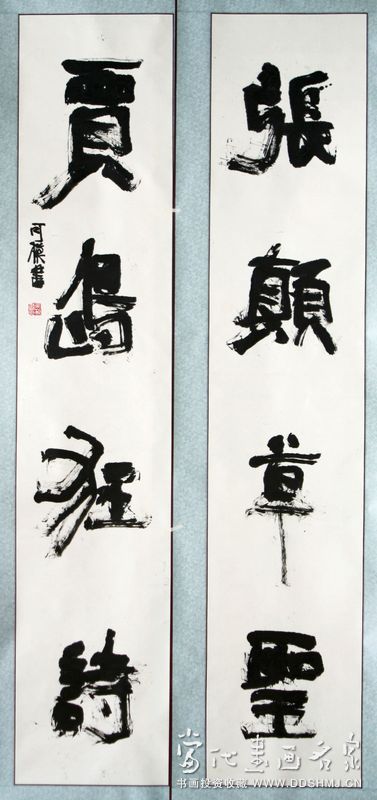 張顛草聖
賈島狂詩
當代書画名家
书画投资收藏 WWW.DDSHMJ.CN